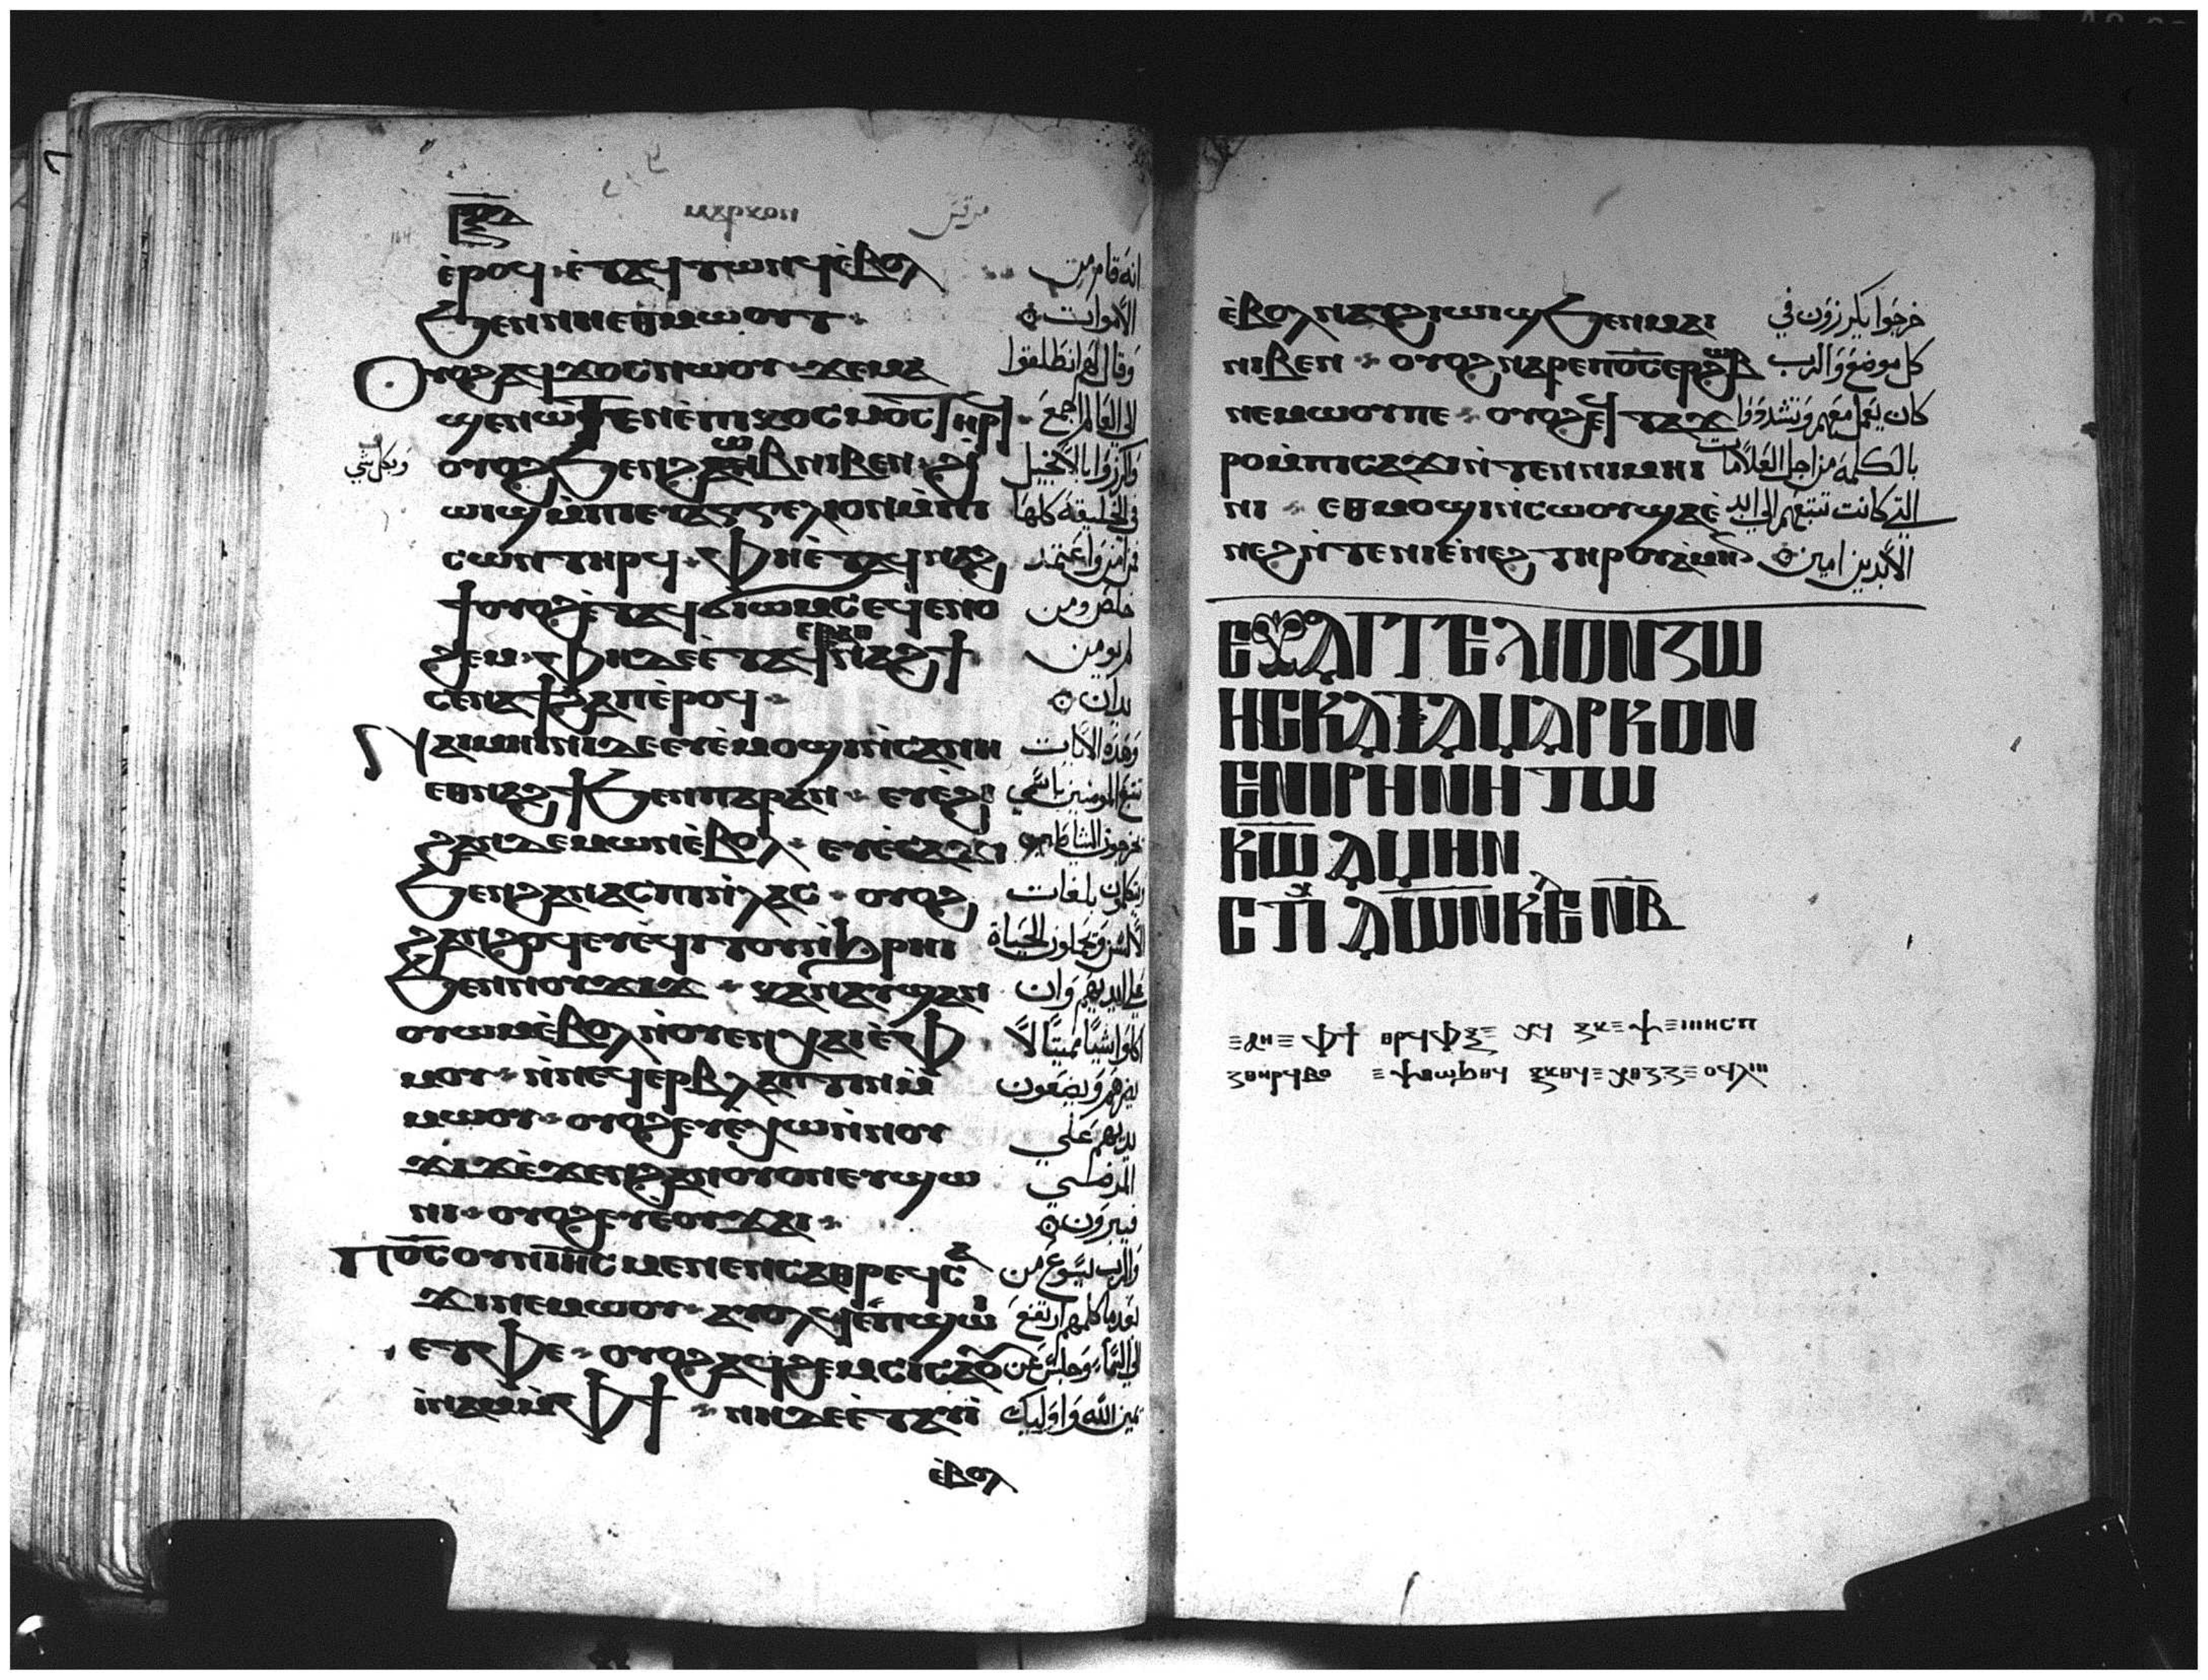 ⲙⲁⲣⲕⲟⲛ مرقس
ⲉ̀ⲣⲟϥ ⲉ̀ⲧⲁϥⲧⲱⲛϥ ⲉ̀ⲃⲟⲗ انه قام من
ϧⲉⲛⲛⲏⲉⲑⲙⲱⲟⲩⲧ الاموات
ⲟⲩⲟϩ ⲁϥϫⲟⲥ ⲛⲱⲟⲩ ϫⲉ ⲙⲁ وقال لهم انطلقوا
ϣⲉⲛⲱⲧⲉⲛ ⲉ̀ⲡⲓⲕⲟⲥⲙⲟⲥ ⲧⲏⲣϥ الي العالم اجمع
ⲟⲩⲟϩ ϧⲉⲛϩⲱⲃ ⲛⲓⲃⲉⲛ ϩⲓ واكرزوا بالانجيل
وبكل شي
ⲱⲓϣ ⲙ̀ⲡⲓⲉⲩⲁⲅⲅⲉⲗⲓⲟⲛ ⲙ̀ⲡⲓ في الخليقة كلها
ⲥⲱⲛⲧ ⲧⲏⲣϥ ⲫⲏⲉ̀ⲧⲁϥⲛⲁϩ فمن امن واعتمد
ϯ ⲟⲩⲟϩ ⲉ̀ⲧⲁϥϭⲓⲱⲙⲥ ⲉϥⲉⲛⲟ خلص ومن
ϩⲉⲙ ⲫⲏⲇⲉ ⲉ̀ⲧⲉ ⲛⲁϩϯ لم يومن
ⲥⲉⲛⲁϯϩⲁⲡ ⲉ̀ⲣⲟϥ يدان
ⲛⲁⲓⲙⲏⲓⲛⲓ ⲇⲉ ⲉⲩⲉ̀ⲙⲟϣⲓ ⲛ̀ⲥⲁⲛⲏ وهذه الايات
ⲉⲑⲛⲁϩϯ ϧⲉⲛⲡⲁⲣⲁⲛ ⲉⲩⲉ̀ϩⲓ تتبع المومنين باسمي
ϩⲁⲛⲇⲉⲙⲱⲛ ⲉ̀ⲃⲟⲗ ⲉⲩⲉ̀ⲥⲁϫⲓ يخرجون الشياطين
ϧⲉⲛϩⲁⲛⲁⲥⲡⲓ ⲛ̀ⲗⲁⲥ ⲟⲩⲟϩ يتكلمون بلغات
ϩⲁⲛϩⲟϥ ⲉⲩⲉ̀ϥⲓⲧⲟⲩ ⲛ̀ϩⲣⲏⲓ الالسن ويحملون الحياة
ϧⲉⲛⲛⲟⲩϫⲓϫ ⲕⲁⲛⲁⲩϣⲁⲛ علي ايديهم وان
ⲟⲩⲱⲙ ⲉ̀ⲃⲟⲗ ⲛ̀ⲟⲩⲉⲛⲭⲁⲓ ⲉ̀ⲫ اكلوا شيا مميتا لا
ⲙⲟⲩ ⲛ̀ⲛⲉϥⲉⲣⲃⲗⲁⲡⲧⲓⲛ ⲙ̀ يضرهم ويضعون
ⲙⲱⲟⲩ ⲟⲩⲟϩ ⲉⲩⲉ̀ⲭⲱ ⲛ̀ⲛⲟⲩ ايديهم علي
ϫⲓϫ ⲉ̀ϫⲉⲛϩⲁⲛⲟⲩⲟⲛ ⲉⲩϣⲱ المرضي
ⲛⲓ ⲟⲩⲟϩ ⲉⲩⲉⲟⲩϫⲁⲓ فيبرون
ⲡⲟ̅ⲥ̅ ⲟⲩⲛ ⲓⲏ̅ⲥ̅ ⲙⲉⲛⲉⲛⲥⲁⲑⲣⲉϥⲥⲁ والرب يسوع من
ϫⲓ ⲛⲉⲙⲱⲟⲩ ⲁⲩⲟⲗϥ ⲉ̀ⲡϣⲱⲓ بعد ما كلمهم ارتفع
ⲉⲧⲫⲉ ⲟⲩⲟϩ ⲁϥϩⲉⲙⲥⲓ ⲥⲁⲟⲩ الي السماء وجلس عن
ⲓ̀ⲛⲁⲙ ⲙ̀ⲫϯ ⲛⲏⲇⲉ ⲉ̀ⲧⲁⲩⲓ̀ يمين الله واوليك
ⲉ̀ⲃⲟⲗ
ⲉ̀ⲃⲟⲗ ⲛⲁⲩϩⲓⲱⲓϣ ϧⲉⲛⲙⲁⲓ خرجوا يكرزون في
ⲛⲓⲃⲉⲛ ⲟⲩⲟϩ ⲛⲁⲣⲉⲡⲟ̅ⲥ̅ ⲉⲣϩⲱⲃ كل موضع والرب
ⲛⲉⲙⲱⲟⲩⲡⲉ ⲟⲩⲟϩ ⲉ̀ⲧⲁϫ كان يعمل معهم وتشددوا
ⲣⲟ ⲙ̀ⲡⲓⲥⲁϫⲓ ⲛ̀ⲧⲉⲛⲛⲓⲙⲏⲓ بالكلمة من اجل العلامات
ⲛⲓ ⲉⲑⲙⲟϣⲓ ⲛ̀ⲥⲱⲟⲩ ϣⲁⲉ̀ التي كانت تتبعهم الي ابد
ⲛⲉϩ ⲛ̀ⲧⲉⲛⲓⲉ̀ⲛⲉϩ ⲧⲏⲣⲟⲩ ⲁ̀ⲙⲏⲛ الابدين امين
ⲉⲩⲁⲅⲅⲉⲗⲓⲟⲛ ⲍⲱ
ⲏⲥ ⲕⲁⲧⲁ ⲙⲁⲣⲕⲟⲛ
ⲉⲛ ⲓⲣⲏⲛⲏ ⲧⲱ
ⲕ̅ⲱ̅ ⲁⲙⲏⲛ